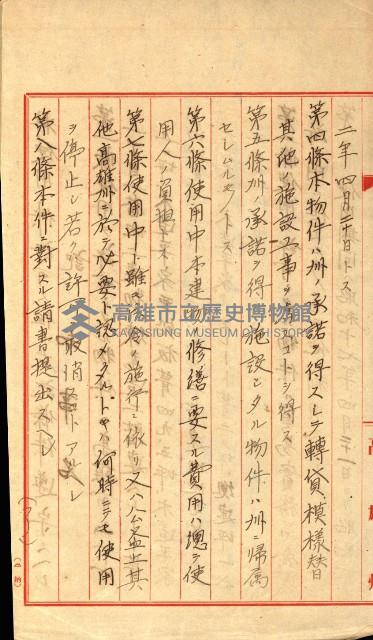 二年四月三十日トス
第四條本物件ハ州ノ承諾ヲ得スシテ轉貸、模樣替
其他ノ施設工事ヲナスコトヲ得ス
第五條州ノ承諾ヲ得施設シタル物件ハ州ニ歸属
セシムルモノトス
第六條使用中本建物修繕ニ要スル費用ハ總テ使
用人ノ負担トス
第七條使用中ト雖モ法令ノ施行ニ依リ又ハ公益上其
他高雄州ニ於テ必要ト認メタルトキハ何時ニテモ使用
ヲ停止シ若クハ許可取消スコトアルヘシ
第八條本件ニ對スル請書提出スヘシ
高雄州
高雄市立歷史博物館
KAOHSIUNG MUSEUM OF HISTORY